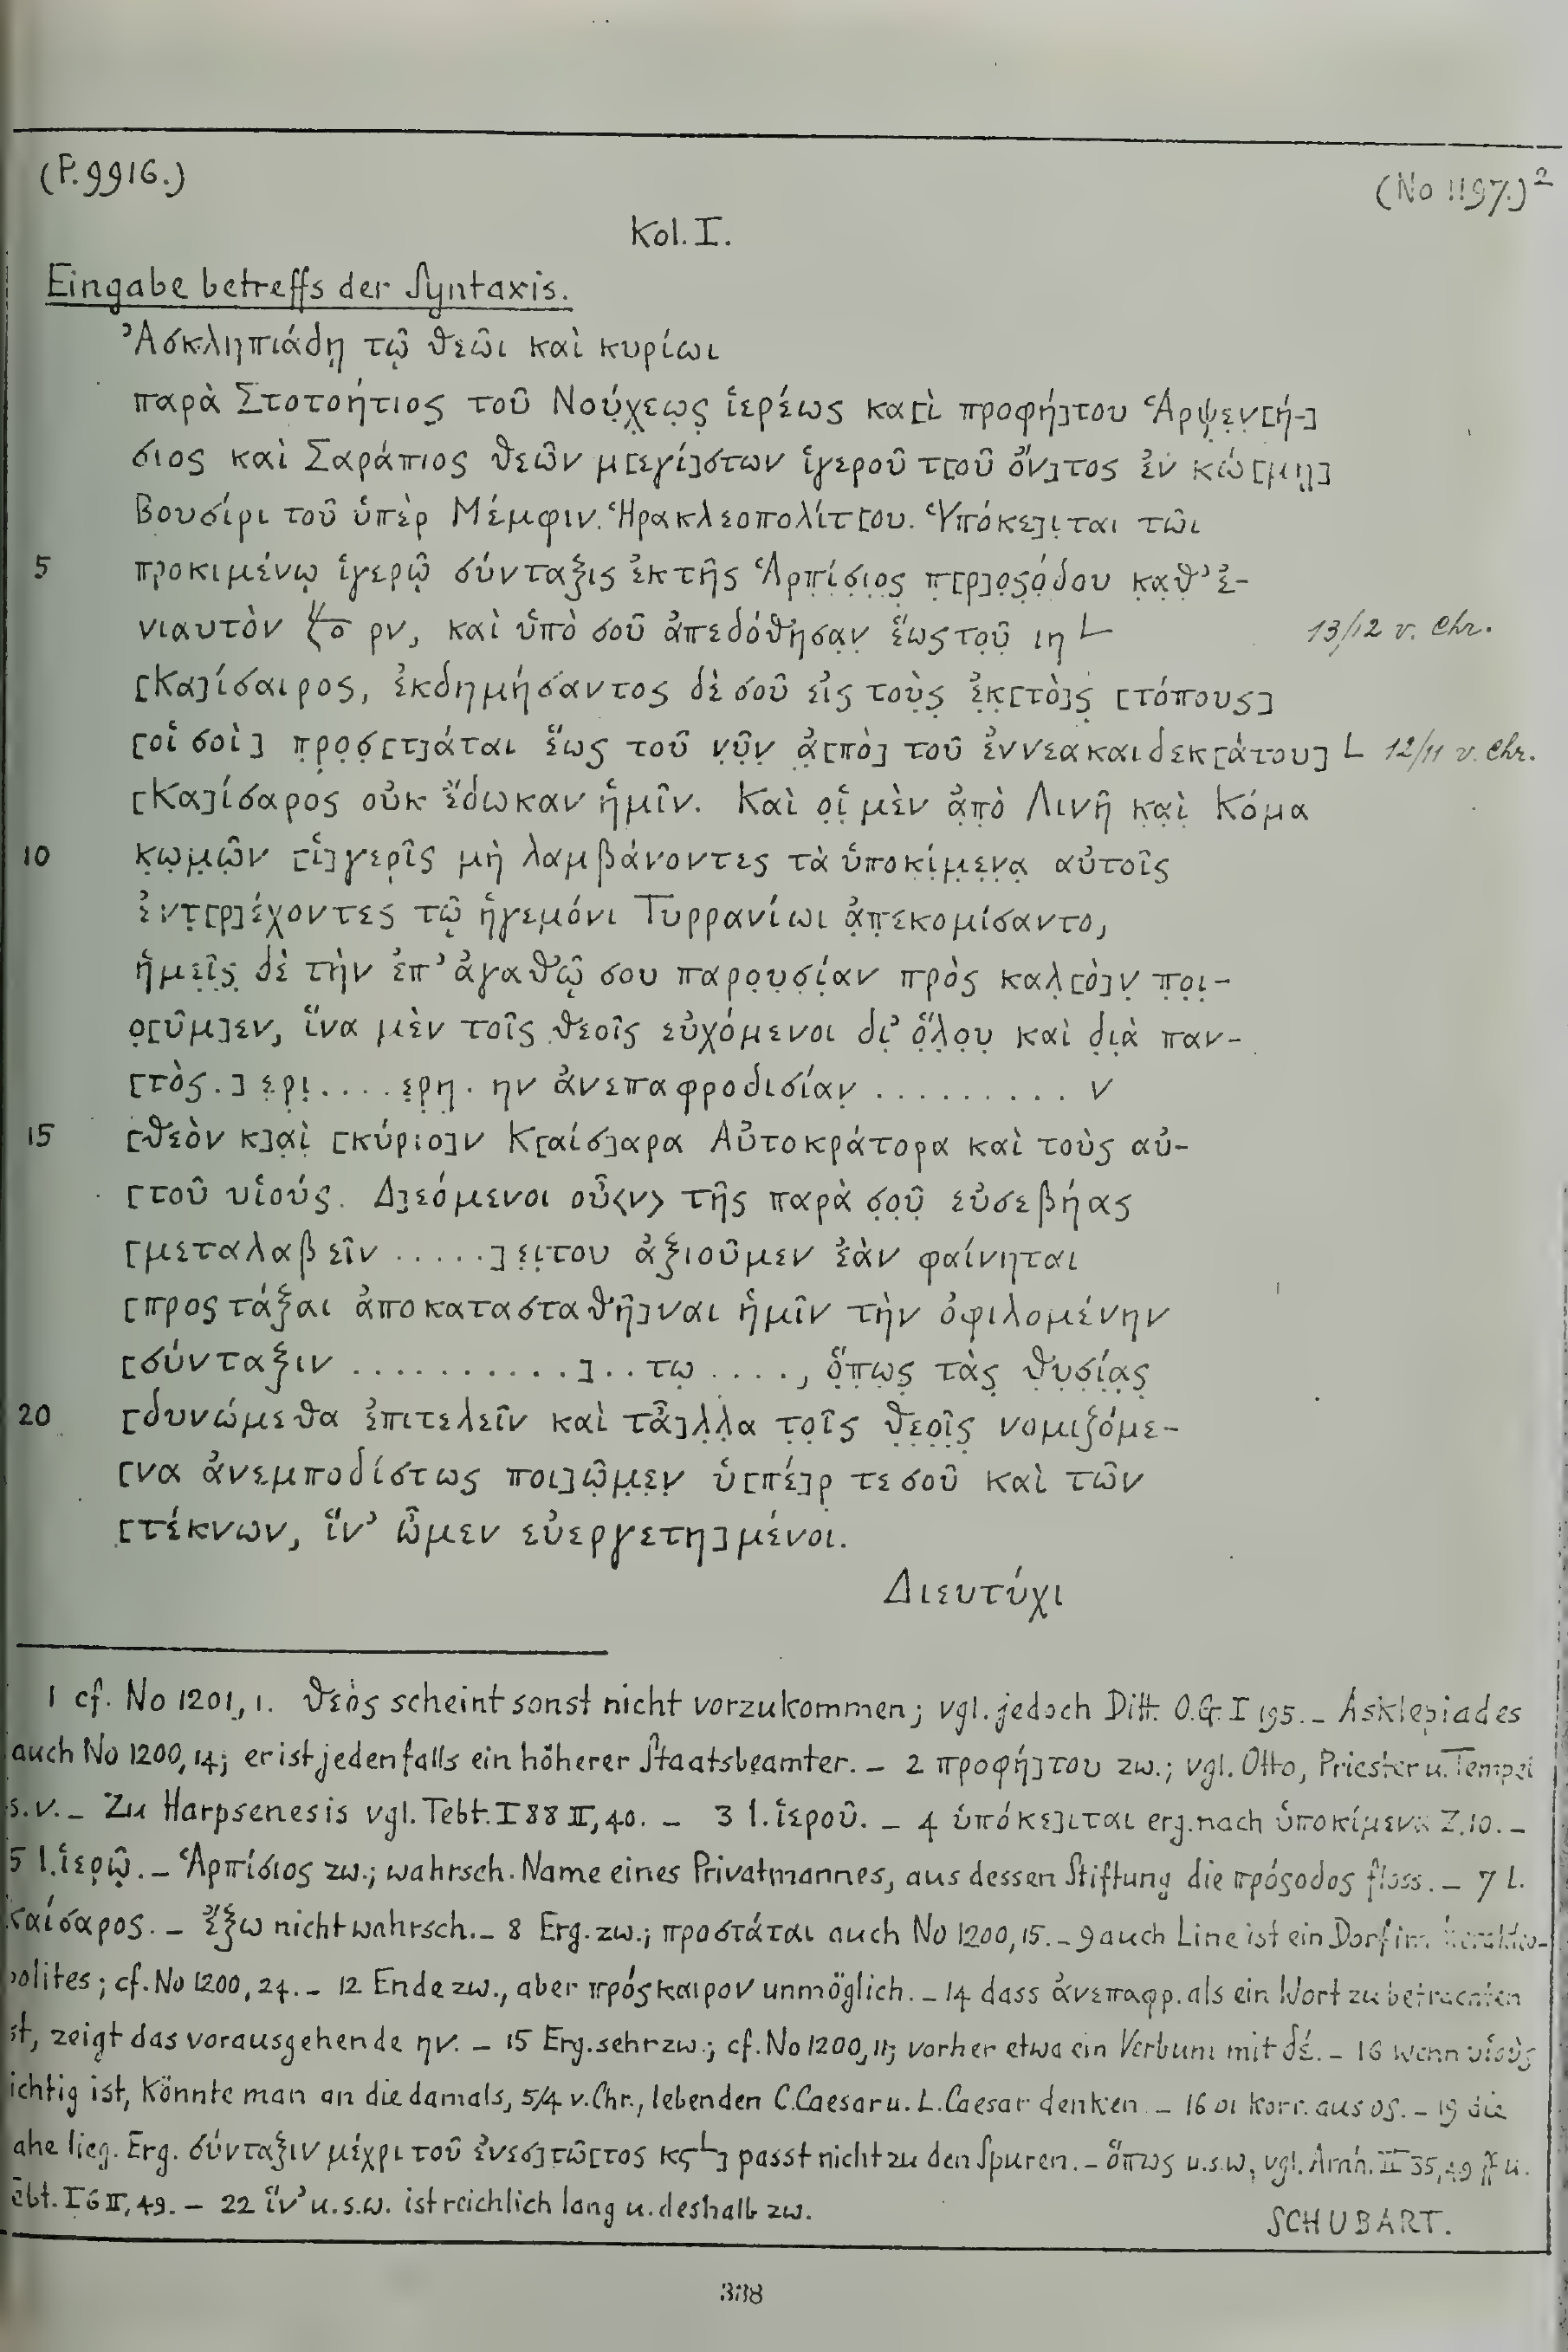 (P. 9916.)
(No 1197.)²
Kol. I.
Eingabe betreffs der Syntaxis.
Ἀσκληπιάδῃ τῷ θεῶι καὶ κυρίωι
παρὰ Στοτοήτιος τοῦ Νού̣χεω̣ς̣ ἱερέως κα[ὶ προφή]του Ἁρψ̣ε̣ν̣[ή-]
σιος καὶ Σαράπιος θεῶν μ[εγί]στων ἱγεροῦ τ[οῦ ὄν]τος ἐν κώ[μῃ]
Βουσίρι τοῦ ὑπὲρ Μέμφιν Ἡρακλεοπολίτ[ου. Ὑπόκε]ι̣ται τῶι
5 προκιμένῳ ἱγερῷ σύνταξις ἐκ τῆς Ἁρπ̣ί̣σ̣ι̣ο̣ς̣ π̣[ρ]ο̣ς̣ό̣δου κ̣α̣θ̣’ ἐ-
νιαυτὸν ρν, καὶ ὑπὸ σοῦ ἀπεδόθησα̣ν̣ ἕως το̣ῦ̣ ιη L 13/12 v. Chr.
[Κα]ίσαιρος, ἐκδημήσαντος δὲ σοῦ εἰς τοὺ̣ς̣ ἐ̣κ̣[τὸ]ς̣ [τόπους]
[οἱ σοὶ] π̣ρ̣ο̣σ̣[τ]άται ἕως τοῦ ν̣ῦ̣ν ἀ̣[πὸ] τοῦ ἐννεακαιδεκ[άτου] L 12/11 v. Chr.
[Κα]ίσαρος οὐκ ἔδωκαν ἡμῖν. Καὶ ο̣ἱ̣ μὲν ἀ̣π̣ὸ Λινῆ κ̣α̣ὶ̣ Κόμα
10 κ̣ω̣μ̣ῶ̣ν [ἱ]γερῖς μὴ λαμβάνοντες τὰ ὑποκί̣μ̣ε̣ν̣α̣ αὐτοῖς
ἐντ̣[ρ]έχοντες τῷ ἡγεμόνι Τυρρανίωι ἀ̣π̣εκομίσαντο,
ἡμε̣ῖ̣ς̣ δὲ τὴν ἐπ’ ἀγαθῷ σου παρο̣υ̣σ̣ί̣αν πρὸς καλ̣[ὸ]ν̣ π̣ο̣ι̣-
ο̣[ῦμ]εν, ἵνα μὲν τοῖς θεοῖς εὐχόμενοι δι̣’ ὅ̣λ̣ο̣υ̣ καὶ δ̣ι̣ὰ παν-
[τὸς .] ε̣ρ̣ι̣ . . . . ε̣ρ̣η̣ . ην ἀνεπαφροδισίαν̣ . . . . . . . . . . ν
15 [θεὸν κ]α̣ὶ̣ [κύριο]ν Κ[αίσ]αρα Αὐτοκράτορα καὶ τοὺς αὐ-
[τοῦ υἱούς. Δ]εόμενοι οὖ<ν> τῆς παρὰ σ̣ο̣ῦ̣ εὐσεβήας
[μεταλαβεῖν . . . . .] ε̣ι̣του ἀξιοῦμεν ἐὰν φαίνηται
[προςτάξαι ἀποκατασταθῆ]ναι ἡμῖν τὴν ὀφιλομένην
[σύνταξιν . . . . . . . . . . .] . . τω̣ . . . . , ὅ̣π̣ω̣ς̣ τὰς̣ θ̣υ̣σ̣ί̣α̣ς̣
20 [δυνώμεθα ἐπιτελεῖν καὶ τἆ]λ̣λ̣α τ̣ο̣ῖς θ̣ε̣ο̣ῖ̣ς̣ νομιζόμε-
[να ἀνεμποδίστως ποι]ῶ̣μ̣ε̣ν̣ ὑ[πέ]ρ̣ τε σοῦ καὶ τῶν
[τέκνων, ἵν’ ὦμεν εὐεργετη]μένοι.
Διευτύχι
1 cf. No 1201, 1. θεός scheint sonst nicht vorzukommen; vgl. jedoch Ditt. O.G. I 195. – Asklepiades
auch No 1200, 14; er ist jedenfalls ein höherer Staatsbeamter. – 2 προφή]του zw.; vgl. Otto, Priester u. Tempel
s.v. – Zu Harpsenesis vgl. Tebt. I 88 II, 40. – 3 l. ἱεροῦ. – 4 ὑπόκε]ιται erg. nach ὑποκίμενα Z. 10. –
5 l. ἱερῷ. – Ἁρπίσιος zw.; wahrsch. Name eines Privatmannes, aus dessen Stiftung die πρόσοδος floss. – 7 l.
Καίσαρος. – Ἔξω nicht wahrsch. – 8 Erg. zw.; προστάται auch No 1200, 15. – 9 auch Line ist ein Dorf im Herakleo-
polites; cf. No 1200, 24. – 12 Ende zw., aber πρόςκαιρον unmöglich. – 14 dass ἀνεπαφρ. als ein Wort zu betrachten
st, zeigt das vorausgehende ην. – 15 Erg. sehr zw.; cf. No 1200, 11; vorher etwa ein Verbum mit δέ. – 16 wenn υἱοὺς
ichtig ist, könnte man an die damals, 5/4 v. Chr., lebenden C. Caesar u. L. Caesar denken – 16 οι korr. aus ος. – 19 die
ahe lieg. Erg. σύνταξιν μέχρι τοῦ ἐνεσ]τῶ[τος κς L] passt nicht zu den Spuren. – ὅπως u.s.w. vgl. Amh. II 35, 49 ff u.
ebt. I 6 II, 49. – 22 ἵν’ u.s.w. ist reichlich lang u. deshalb zw.
SCHUBART.
338